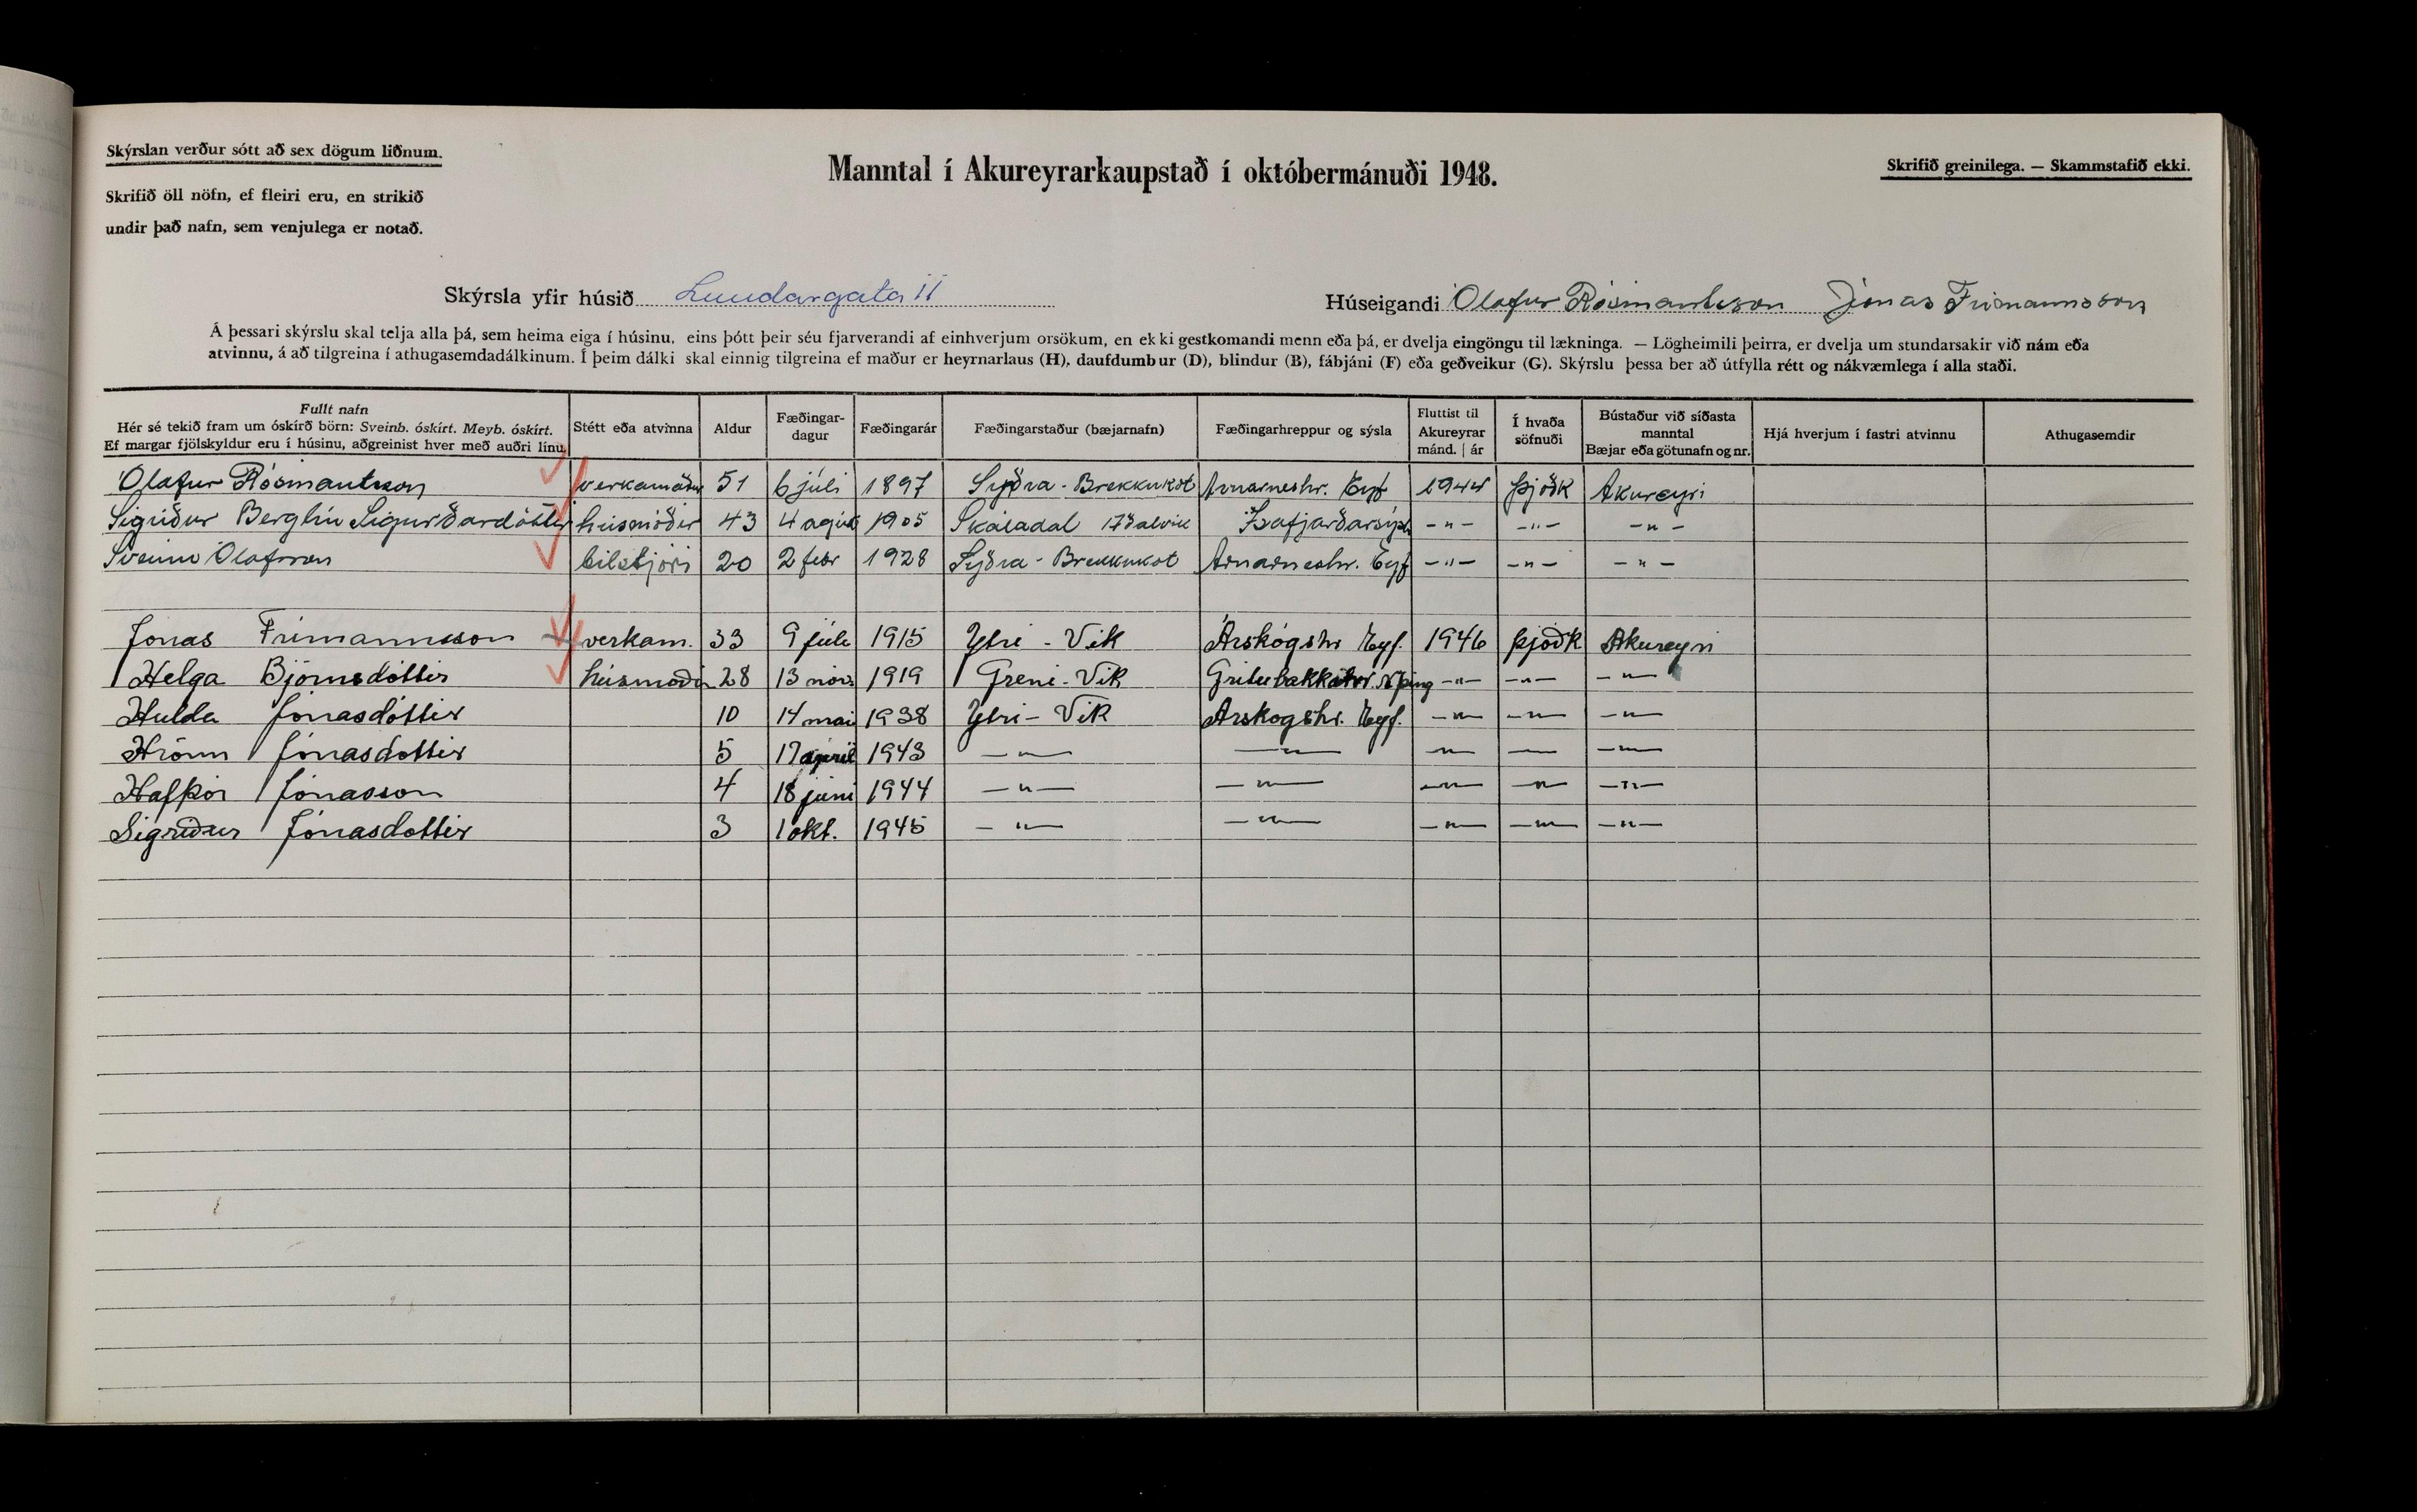 Skýrslan verður sótt að sex dögum liðnum.
Skrifið öll nöfn, ef fleiri eru, en strikið
undir það nafn, sem venjulega er notað.
Manntal í Akureyrarkaupstað í októbermánuði 1948.
Skrifið greinilega. — Skammstafið ekki.
Skýrsla yfir húsið Lundargata 11
Húseigandi Ólafur Rósinantsson Jónas Frímannsson
Á þessari skýrslu skal telja alla þá, sem heima eiga í húsinu, eins þótt þeir séu fjarverandi af einhverjum orsökum, en ekki gestkomandi menn eða þá, er dvelja eingöngu til lækninga. — Lögheimili þeirra, er dvelja um stundarsakir við nám eða
atvinnu, á að tilgreina í athugasemdadálkinum. Í þeim dálki skal einnig tilgreina ef maður er heyrnarlaus (H), daufdumbur (D), blindur (B), fábjáni (F) eða geðveikur (G). Skýrslu þessa ber að útfylla rétt og nákvæmlega í alla staði.
Fullt nafn
Hér sé tekið fram um óskírð börn: Sveinb. óskírt. Meyb. óskírt.
Ef margar fjölskyldur eru í húsinu, aðgreinist hver með auðri línu.
Stétt eða atvinna
Aldur
Fæðingar-
dagur
Fæðingarár
Fæðingarstaður (bæjarnafn)
Fæðingarhreppur og sýsla
Fluttist til
Akureyrar
mánd. | ár
Í hvaða
söfnuði
Bústaður við síðasta
manntal
Bæjar eða götunafn og nr.
Hjá hverjum í fastri atvinnu
Athugasemdir
Ólafur Rósinantsson verkamaður 51 6 júlí 1897 Syðra-Brekkukot Arnarneshr. Eyf 1944 þjóðk Akureyri
Sigríður Berglín Sigurðardóttir húsmóðir 43 4 agúst 1905 Skáladal Ísafjarðarsýsl -"- -"- -"-
Sveinn Ólafsson bílstjóri 20 2 febr 1928 Syðra-Brekkukot Arnarneshr. Eyf -"- -"- -"-
Jónas Frímannsson verkam. 33 9 júlí 1915 Ytri-Vík Árskógshr Eyf. 1946 þjóðk Akureyri
Helga Björnsdóttir húsmóðir 28 13 nóv. 1919 Greni-Vík Grítubakkahr. N þing -"- -"- -"-
Hulda Jónasdóttir 10 14 maí 1938 Ytri-Vík Árskogshr. Eyf. -"- -"- -"-
Hrönn Jónasdóttir 5 17 apríl 1943 -"- -"- -"- -"- -"-
Hafþór Jónasson 4 18 júní 1944 -"- -"- -"- -"- -"-
Sigríður Jónasdóttir 3 1 okt. 1945 -"- -"- -"- -"- -"-